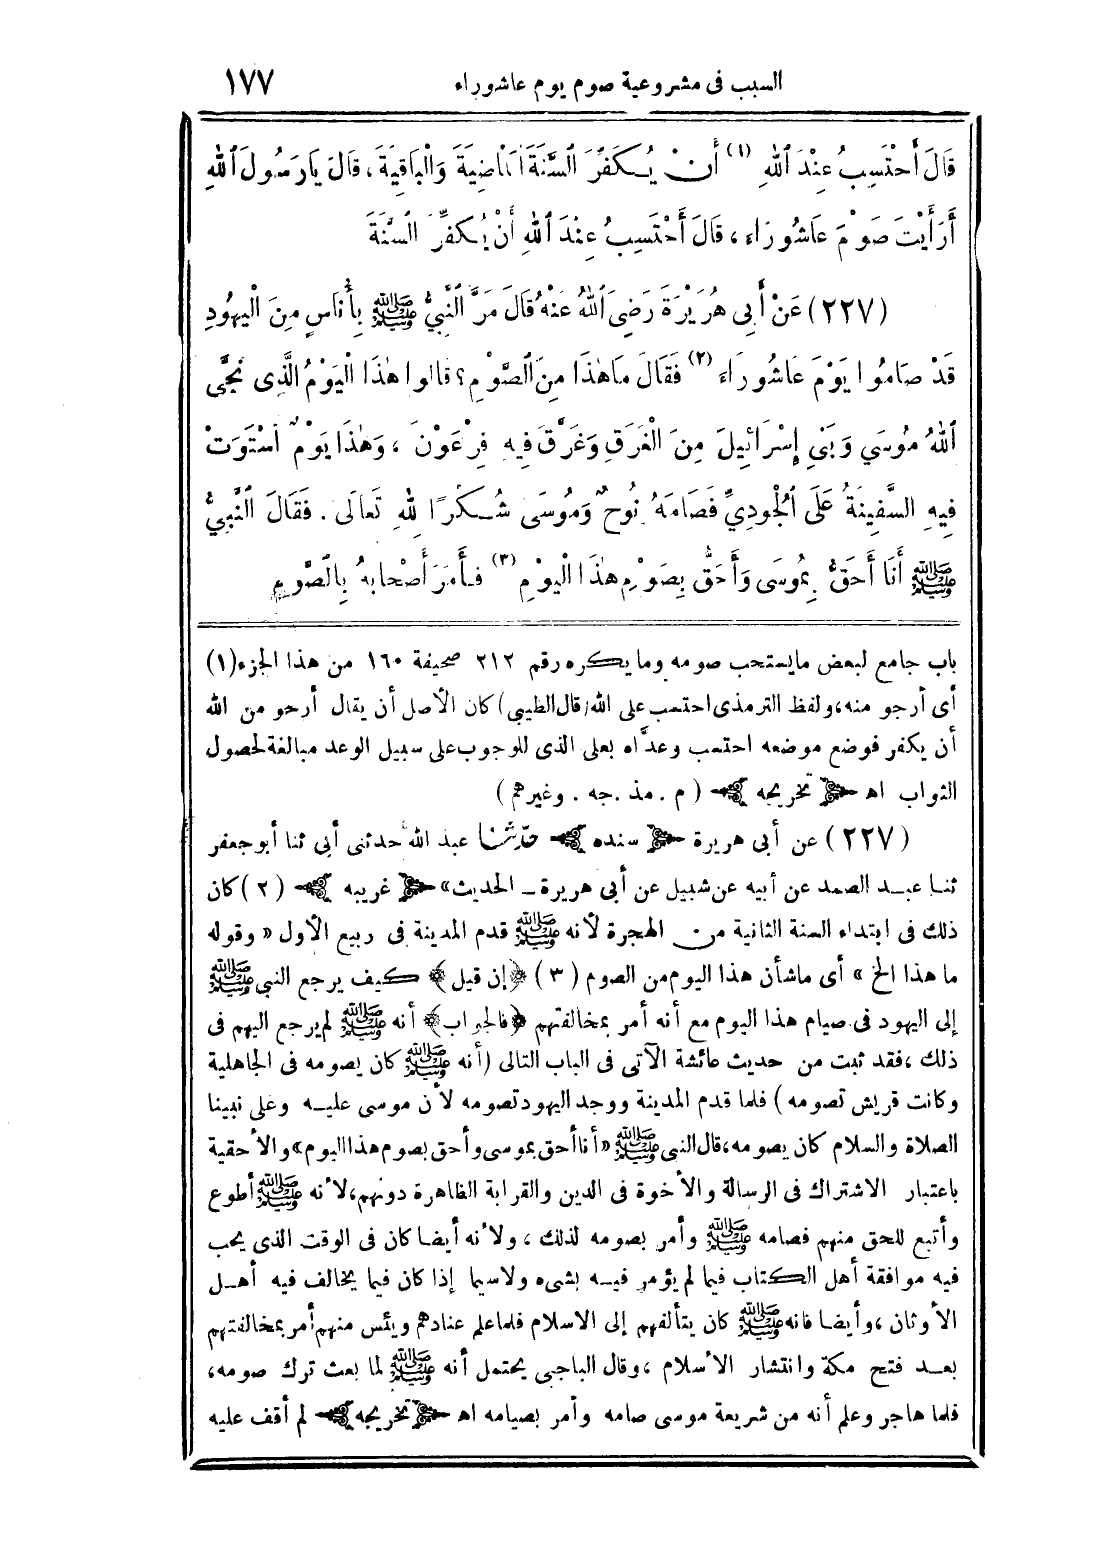 السبب فى مشروعية صوم يوم عاشوراء ١٧٧
قَالَ أَحْتَسِبُ عِنْدَ اللهِ (١) أَنْ يُكَفِّرَ السَّنَةَ الْمَاضِيَةَ وَالْبَاقِيَةَ ، قَالَ يَارَسُولَ اللهِ
أَرَأَيْتَ صَوْمَ عَاشُورَاء ، قَالَ أَحْتَسِبُ عِنْدَ اللهِ أَنْ يُكَفِّرَ السَّنَةَ
(٢٢٧) عَنْ أَبِى هُرَيْرَةَ رَضِىَ اللهُ عَنْهُ قَالَ مَرَّ النَّبِيُّ ﷺ بِأُنَاسٍ مِنَ الْيَهُودِ
قَدْ صَامُوا يَوْمَ عَاشُورَاءَ (٢) فَقَالَ مَاهٰذَا مِنَ الصَّوْمِ ؟ قالوا هٰذَا الْيَوْمُ الَّذِى نَجَّى
اللهُ مُوسَى وَبَنِى إِسْرَائِيلَ مِنَ الْغَرَقِ وَغَرَّقَ فِيهِ فِرْعَوْنَ ، وَهٰذَا يَوْمٌ اسْتَوَتْ
فِيهِ السَّفِينَةُ عَلَى الْجُودِيِّ فَصَامَهُ نُوحٌ وَمُوسَى شُكْرًا لِلهِ تَعَالَى . فَقَالَ النَّبِيُّ
ﷺ أَنَا أَحَقُّ بِمُوسَى وَأَحَقُّ بِصَوْمِ هٰذَا الْيَوْمِ (٣) فَأَمَرَ أَصْحَابَهُ بِالصَّوْمِ
باب جامع لبعض مايستحب صومه وما يكره رقم ٢١٢ صحيفة ١٦٠ من هذا الجزء (١)
أى أرجو منه، ولفظ الترمذى احتسب على الله (قال الطيبى) كان الأصل أن يقال أرجو من الله
أن يكفر فوضع موضعه احتسب وعدَّاه بعلى الذى للوجوب على سبيل الوعد مبالغة لحصول
الثواب اهـ ﴿ تخريجه ﴾ ( م . مذ . جه . وغيرهم )
(٢٢٧) عن أبى هريرة ﴿ سنده ﴾ حدّثنا عبد الله حدثنى أبى ثنا أبو جعفر
ثنا عبد الصمد عن أبيه عن شبيل عن أبى هريرة ــ الحديث» ﴿ غريبه ﴾ (٢) كان
ذلك فى ابتداء السنة الثانية من الهجرة لأنه ﷺ قدم المدينة فى ربيع الأول « وقوله
ما هذا الخ » أى ماشأن هذا اليوم من الصوم (٣) ﴿إن قيل﴾ كيف يرجع النبى ﷺ
إلى اليهود فى صيام هذا اليوم مع أنه أمر بمخالفتهم ﴿فالجواب﴾ أنه ﷺ لم يرجع اليهم فى
ذلك ، فقد ثبت من حديث عائشة الآتى فى الباب التالى (أنه ﷺ كان يصومه فى الجاهلية
وكانت قريش تصومه) فلما قدم المدينة ووجد اليهود تصومه لأن موسى عليه وعلى نبينا
الصلاة والسلام كان يصومه، قال النبى ﷺ «أنا أحق بموسى وأحق بصوم هذا اليوم» والأحقية
باعتبار الاشتراك فى الرسالة والأخوة فى الدين والقرابة الظاهرة دونهم، لأنه ﷺ أطوع
وأتبع للحق منهم فصامه ﷺ وأمر بصومه لذلك ، ولأنه أيضا كان فى الوقت الذى يحب
فيه موافقة أهل الكتاب فيما لم يؤمر فيه بشىء ولاسيما إذا كان فيما يخالف فيه أهل
الأوثان ، وأيضا فانه ﷺ كان يتألفهم إلى الاسلام فلما علم عنادهم ويئس منهم أمر بمخالفتهم
بعد فتح مكة وانتشار الأسلام ، وقال الباجى يحتمل أنه ﷺ لما بعث ترك صومه،
فلما هاجر وعلم أنه من شريعة موسى صامه وأمر بصيامه اهـ ﴿ تخريجه ﴾ لم أقف عليه